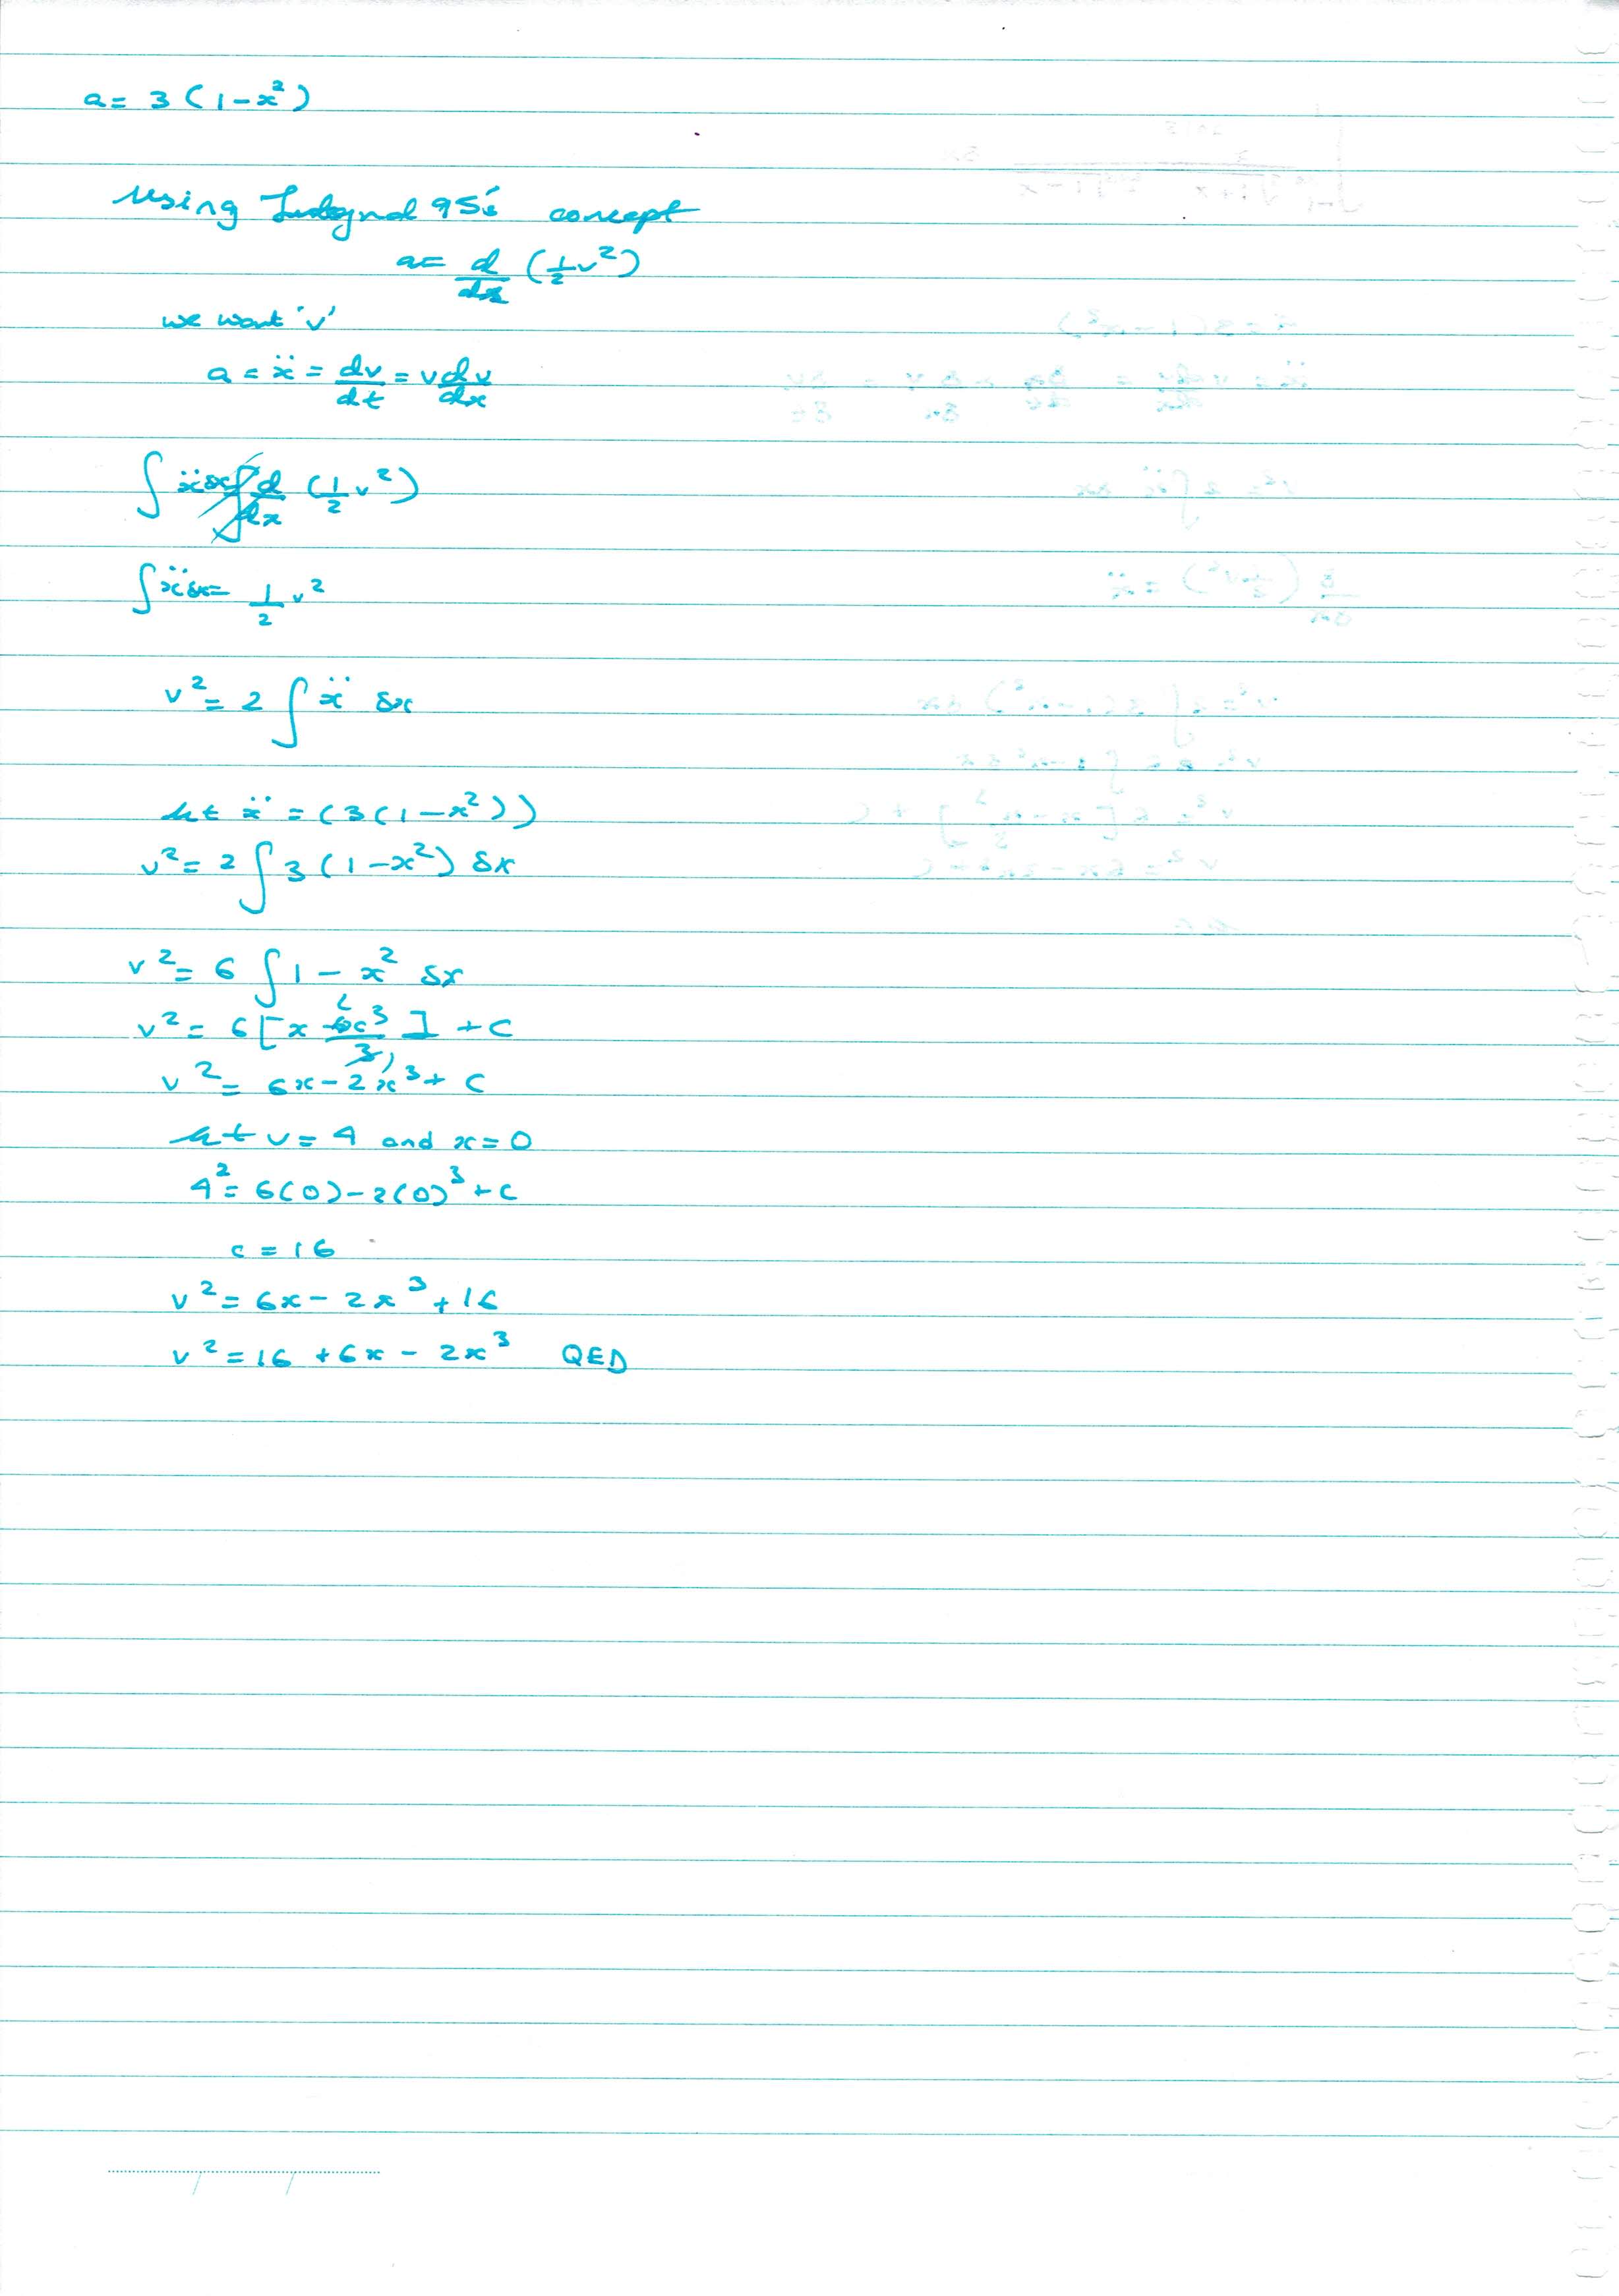 a = 3(1-x²)
Using Integral 95's concept
a = d/dx (½v²)
we want 'v'
a = ẍ = dv/dt = v dv/dx
∫ ẍ δx d/dx (½v²)
∫ ẍ δx = ½ v²
v² = 2 ∫ ẍ δx
let ẍ = (3(1-x²))
v² = 2 ∫ 3(1-x²) δx
v² = 6 ∫ 1 - x² δx
v² = 6[x - x³/3] + c
v² = 6x - 2x³ + c
let v = 4 and x = 0
4² = 6(0) - 2(0)³ + c
c = 16
v² = 6x - 2x³ + 16
v² = 16 + 6x - 2x³ QED